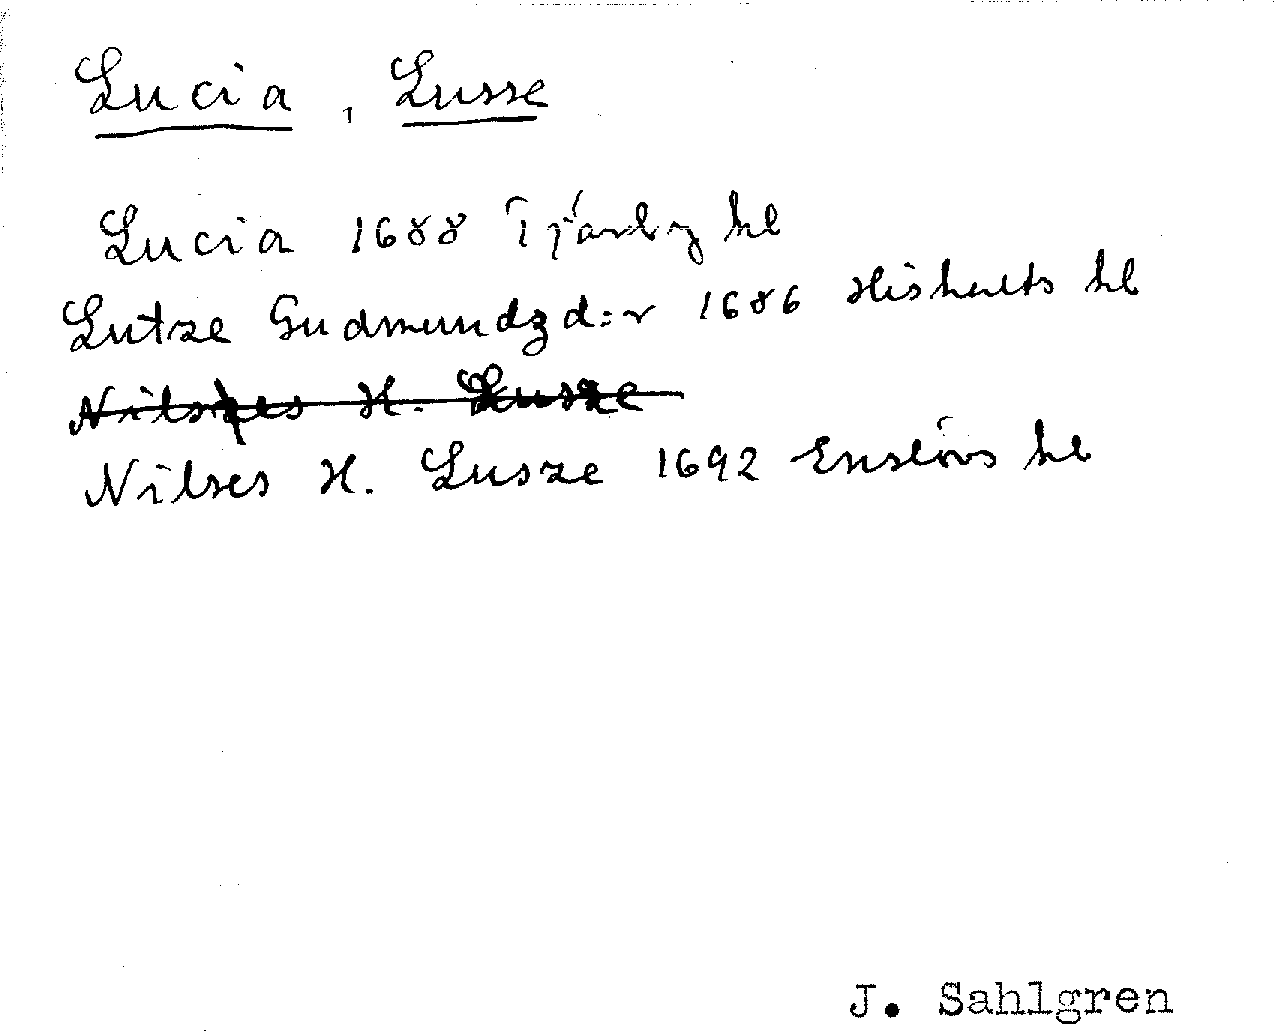 Lucia, Lusse
Lucia 1688 Tjärby hl
Lutze Gudmundzd:r 1686 Hishults hl
Nilses H. Lusze
Nilses H. Lusze 1692 Enslövs hl
J. Sahlgren